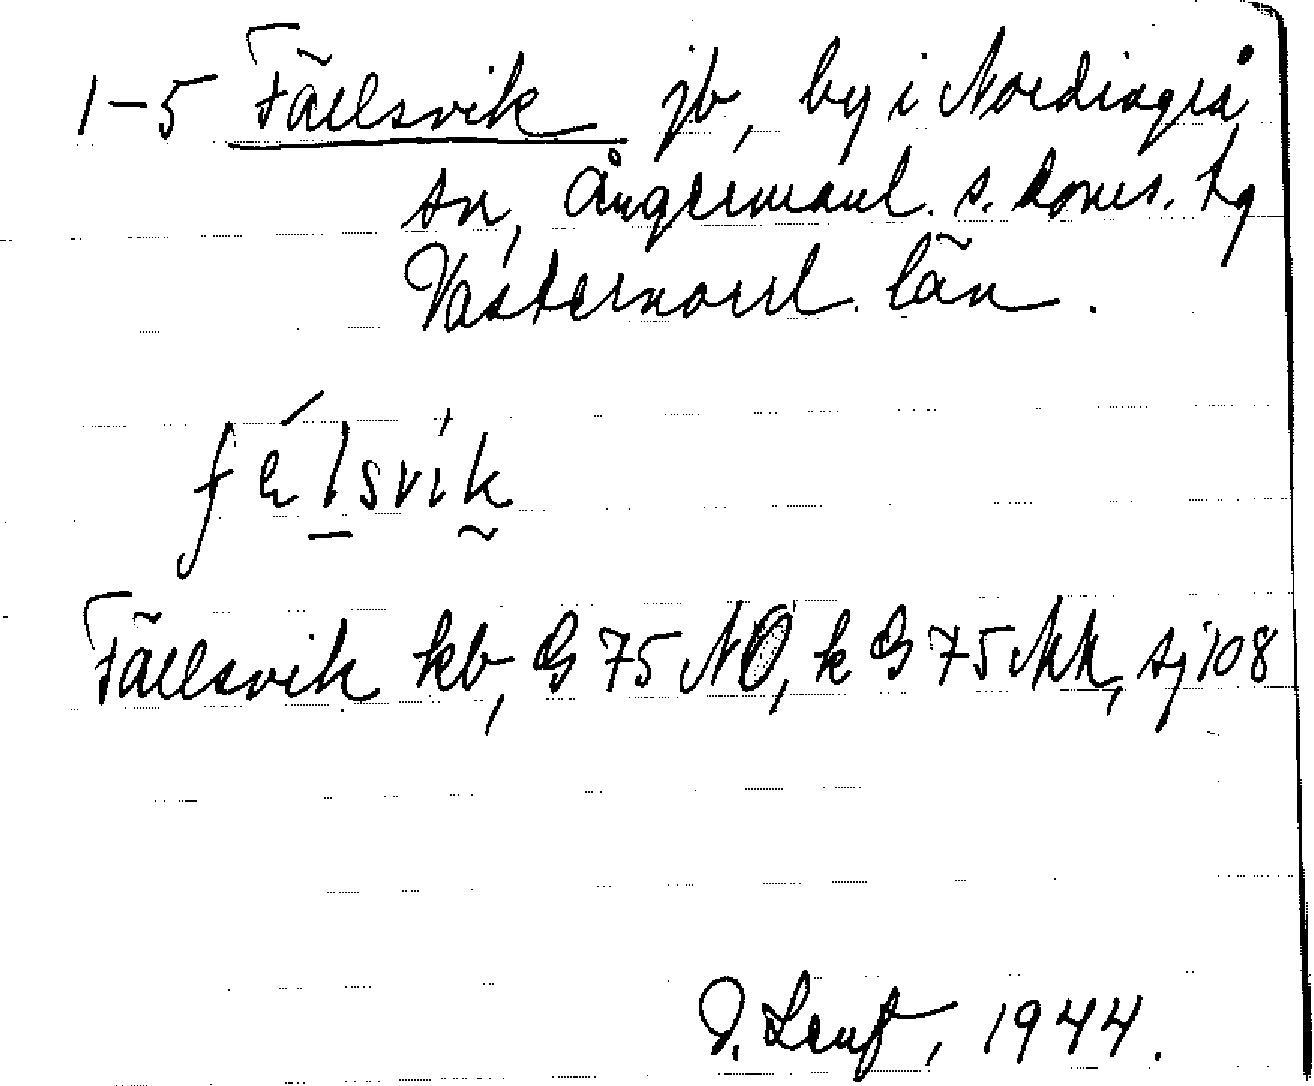 1-5 Fällsvik jb, by i Nordingrå
sn, Ångermanl. s. doms. tg
Västernorrl. län.
fɛ́lsvìk
Fällsvik kb, G 75 NO, k G 75 sj 108
1944.